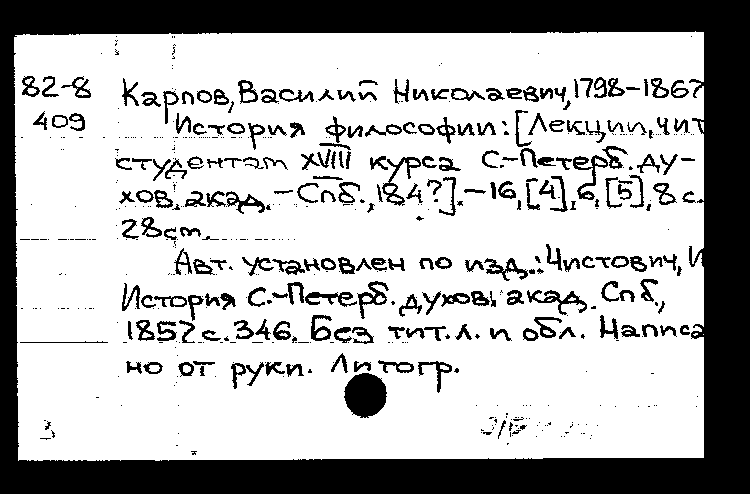 82-8 Карпов, Василий Николаевич, 1798-1867
409 История философии: [Лекции, чит
студентам XVIII курса С.-Петерб. ду-
хов. акад. - Спб., 184?]. - 16, [4], 6, [5], 8 с.
28cm.
Авт. установлен по изд.: Чистович, И
История С.-Петерб. духов. акад. Спб.,
1857 с. 346. Без тит. л. и обл. Написа
но от руки. Литогр.
3